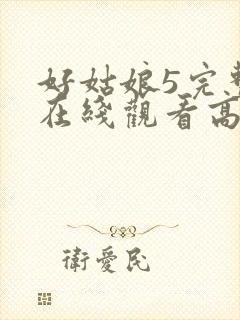 好姑娘5完整
在綫觀看高
衛愛民